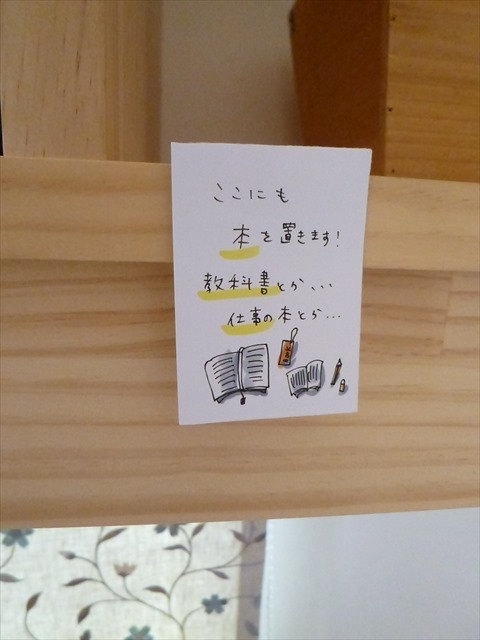 ここにも
本を置きます!
教科書とか...
仕事の本とか...